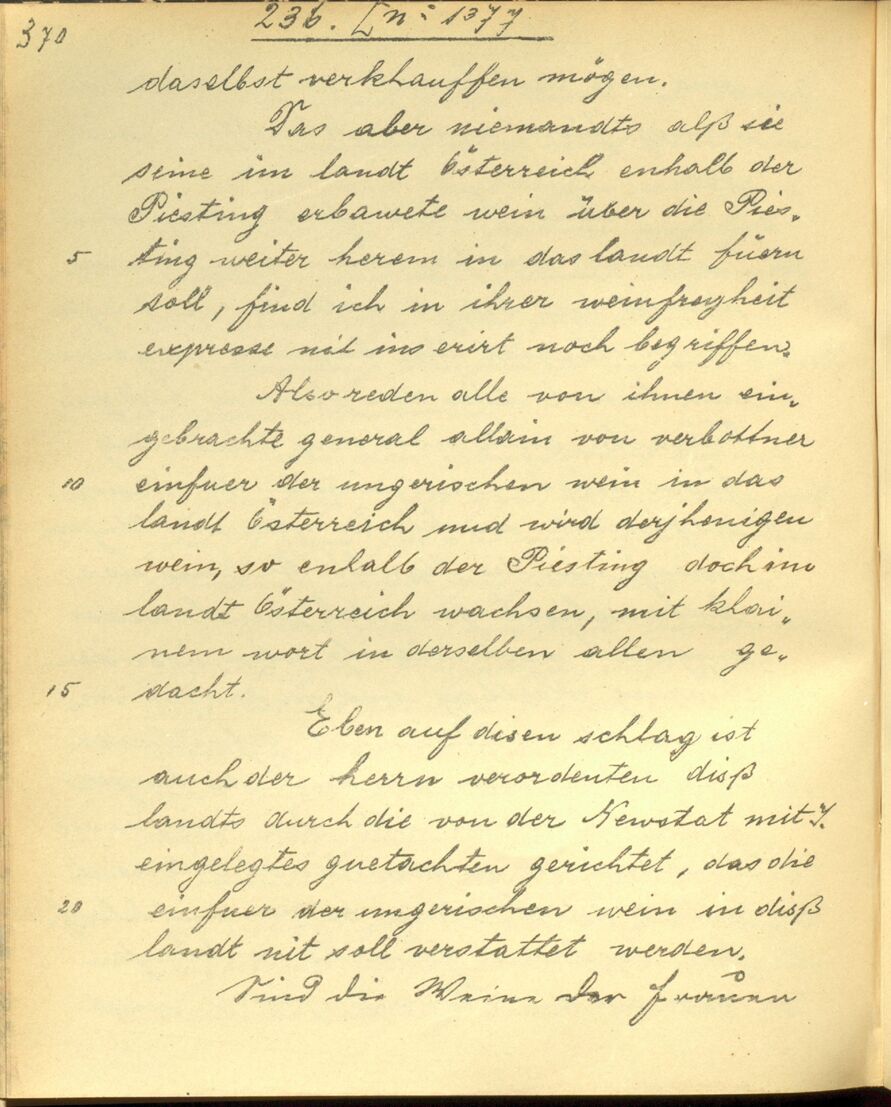 370
236. [nº 1377
daselbst verkhauffen mögen.
Das aber niemandts alß sie
seine im landt Österreich enhalb der
Piesting erbawete wein über die Pies„
5 ting weiter herem in das landt füern
soll, find ich in ihrer weinfreyheit
expresse nit inserirt noch begriffen.
Also reden alle von ihnen ein„
gebrachte general allain von verbottner
10 einfuer der ungerischen wein in das
landt Österreich und wird derjhenigen
wein, so enhalb der Piesting doch im
landt Österreich wachsen, mit klai„
nem wort in derselben allen ge„
15 dacht.
Eben auf disen schlag ist
auch der herrn verordenten diß
landts durch die von der Newstat mit
eingelegtes guetachten gerichtet, das die
20 einfuer der ungerischen wein in diß
landt nit soll verstattet werden.
Sind die Weine der